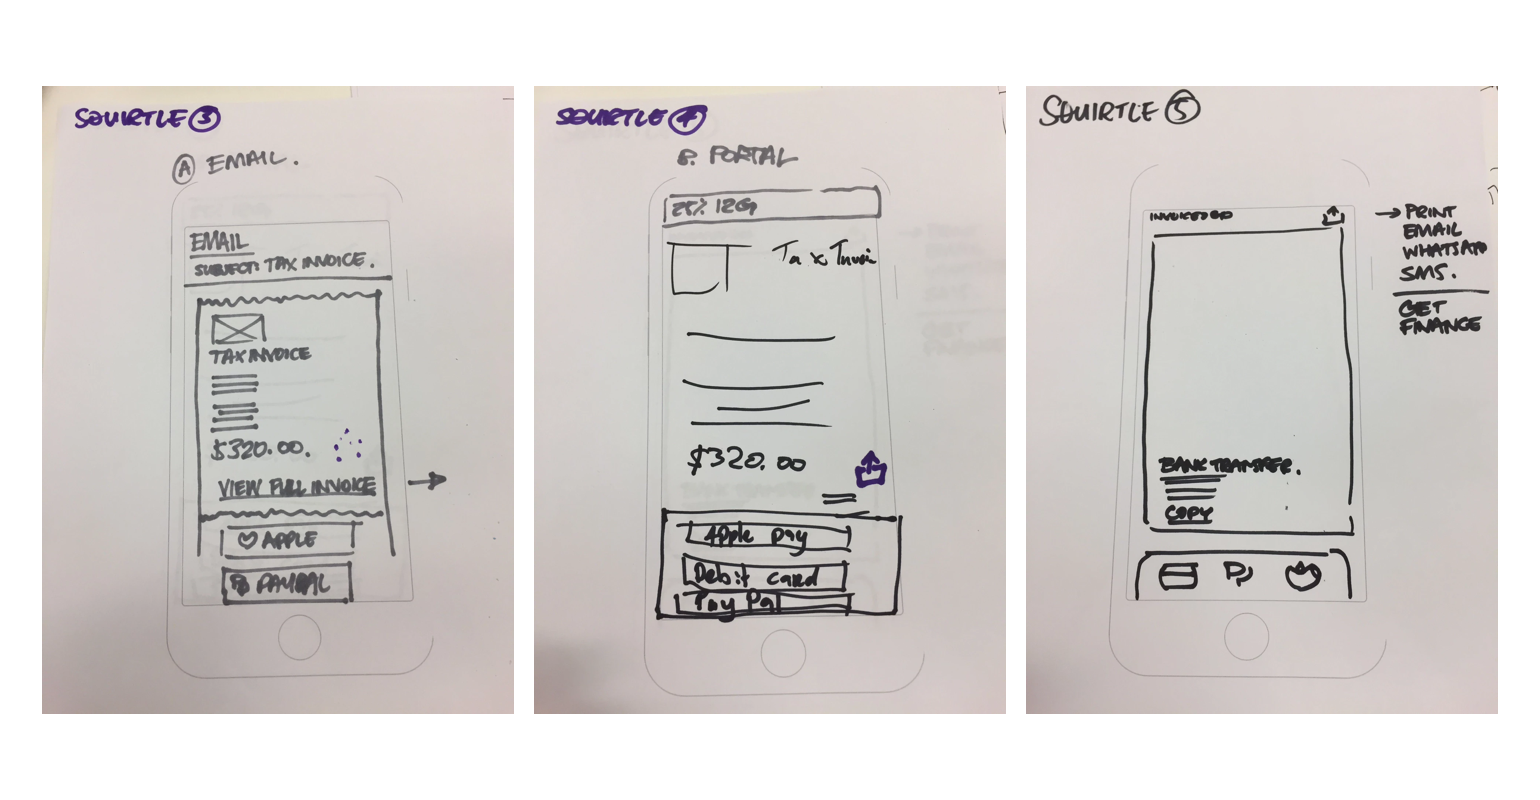 SQUIRTLE 3
A EMAIL.
EMAIL
SUBJECT: TAX INVOICE.
TAX INVOICE
$320.00.
VIEW FULL INVOICE
APPLE
PAYPAL
SQUIRTLE 4
B. PORTAL
Tax Invoi
$320.00
Apple pay
Debit card
Pay Pal
SQUIRTLE 5
BANK TRANSFER.
COPY
→ PRINT
EMAIL
WHATSAPP
SMS.
GET
FINANCE